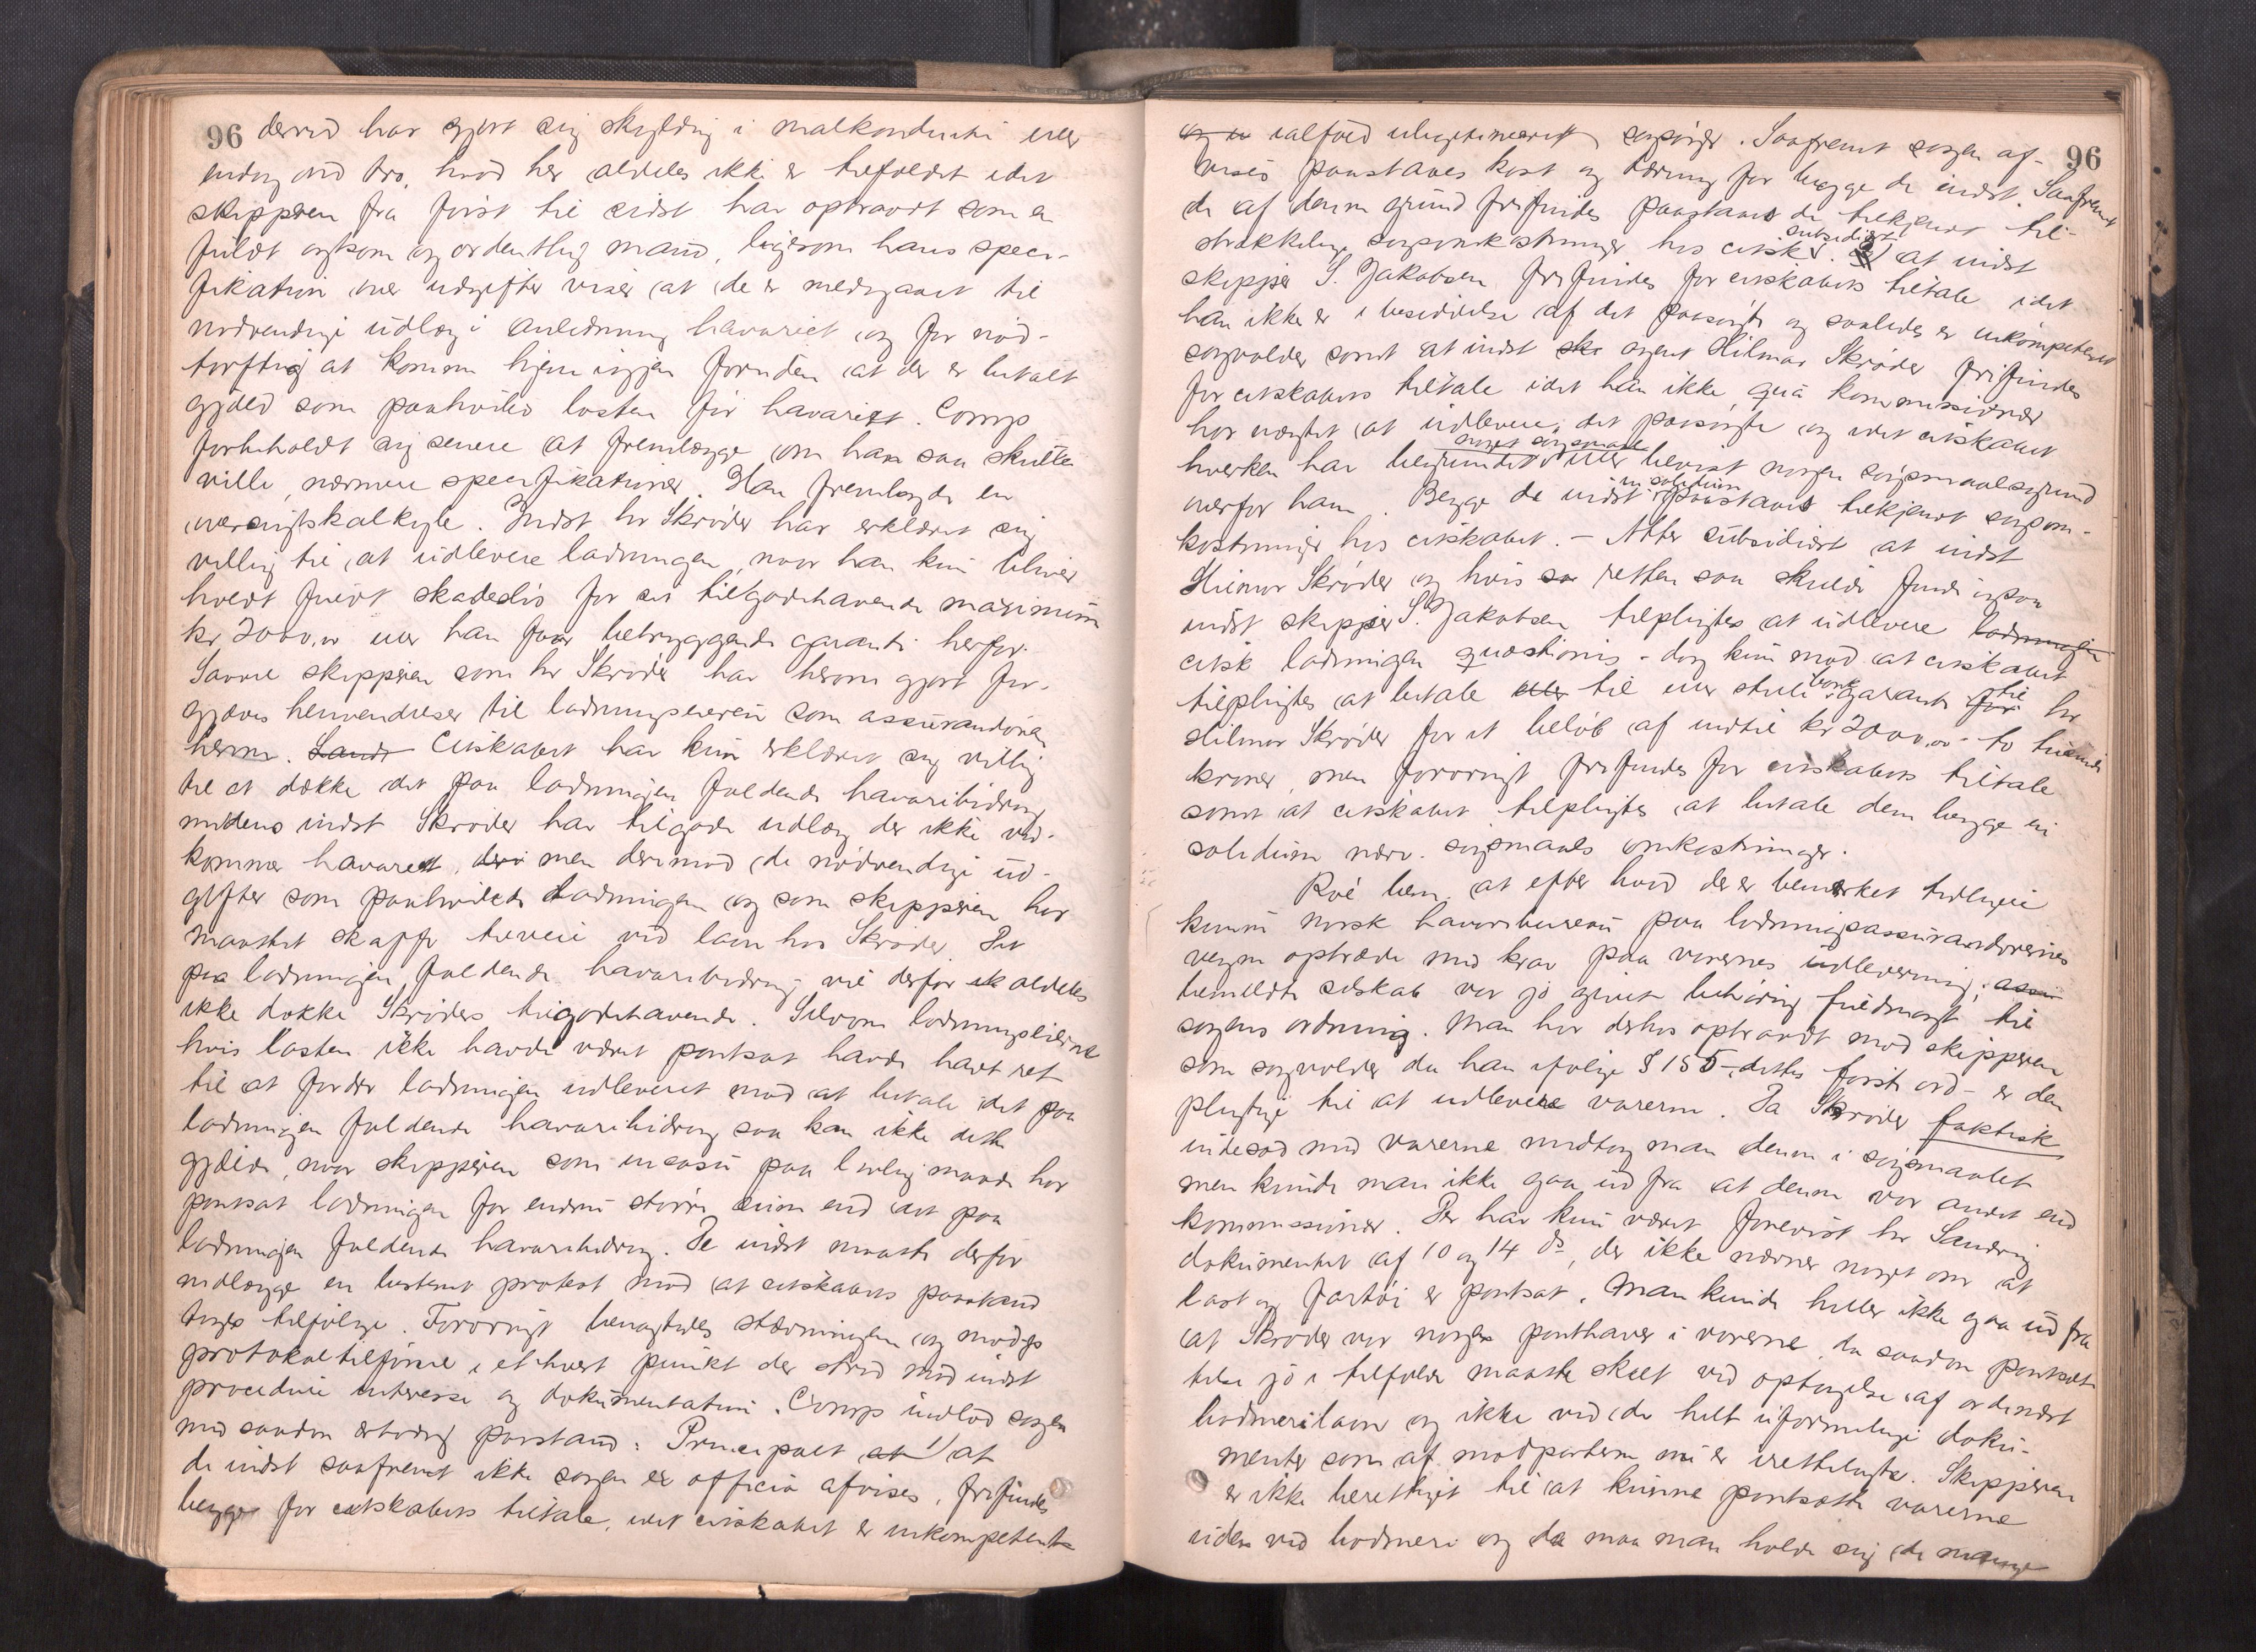 96 derved har gjort sig skyldig i malkonduite eller
endog ond tro, hvad her aldeles ikke er tilfældet idet
skipperen fra først til sidst har optraadt som en
fuldt agtsom og ordentlig mand, ligesom hans speci-
fikation over udgifter viser at de er medgaaet til
nødvendige udlæg i anledning havariet og for nød-
tørftig at komme hjem igjen foruden at der er betalt
gjæld som paahviled lasten før havariet. Comp
forbeholdt sig senere at fremlægge om han saa skulde
ville, nærmere specifikationer. Han fremlagde en
oversigtskalkyle. Indst hr Skrøder har erklæret sig
villig til at udlevere ladningen, naar han kun bliver
holdt fuldt skadesløs for sit tilgodehavende maximum
kr 2000,00 eller han faar betryggende garanti herfor.
Saavel skipperen som hr Skrøder har herom gjort for-
gjæves henvendelser til ladningseieren som assurandøren
herom. Citskabet har kun erklæret sig villig
til at dække det paa ladningen faldende havaribidrag
medens indst Skrøder har tilgode udlæg der ikke ved-
kommer havariet, men derimod de nødvendige ud-
gifter som paahvilede ladningen og som skipperen har
maattet skaffe tilveie ved laan hos Skrøder. Det
paa ladningen faldende havaribidrag vil derfor aldeles
ikke dække Skrøders tilgodehavende. Selvom ladningseierne
hvis lasten ikke havde været pantsat havde havt ret
til at fordre ladningen udleveret mod at betale det paa
ladningen faldende havaribidrag saa kan ikke dette
gjælde, naar skipperen som in casu paa lovlig maade har
pantsat ladningen for endnu større sum end det paa
ladningen faldende havaribidrag. De indst maatte derfor
nedlægge en bestemt protest mod at citskabets paastand
toges tilfølge. Forøvrigt benægtedes stævningen og modpts
protokoltilførsel i ethvert punkt der strid mod indst
procedure interesse og dokumentation. Comp indlod sagen
med saadan ærbødig paastand: Principalt 1) at
de indst saafremt ikke sagen ex officio afvises, frifindes
begge for citskabets tiltale, idet citskabet er inkompetent
96
ialfald ulegitimeret sagsøger. Saafremt sagen af-
vises paastaaes kost og tæring for begge de indst. Saafremt
de af denne grund frifindes paastaaes de tilkjendt til-
strækkelige sagsomkostninger hos citsk. subsidiært at indst
skipper S. Jakobsen frifindes for citskabets tiltale idet
han ikke er i besiddelse af det paasøgte og saaledes er inkompetent
sagvolder samt at indst agent Hilmar Skrøder frifindes
for citskabets tiltale idet han ikke quâ kommissionær
har nægtet at udlevere det paasøgte og idet citskabet
hverken har begrundet noget søgsmaal eller bevist nogen søgsmaalsgrund
overfor ham. Begge de indst in solidum paastaaes tilkjendt sagsom-
kostninger hos citskabet. – Atter subsidiært at indst
Hilmar Skrøder og hvis retten saa skulde finde ogsaa
indst skipper S. Jakobsen tilpligtes at udlevere
citsk ladningen quæstionis – dog kun mod at citskabet
tilpligtes at betale til eller stille bankgaranti til hr
Hilmar Skrøder for et beløb af indtil kr 2000,00 – to tusinde
kroner, men forøvrigt frifindes for citskabets tiltale
samt at citskabet tilpligtes at betale dem begge in
solidum nærv. søgsmaals omkostninger.
Roé bem. at efter hvad der er bemærket tidligere
kunde norsk havaribureau paa ladningsassurandørernes
vegne optræde med krav paa varernes udlevering,
bemeldte selskab var jo givet behørig fuldmagt til
sagens ordning. Man har derhos optraadt mod skipperen
som sagvolder da han ifølge § 155 – dettes første ord – er den
pligtige til at udlevere varerne. Da Skrøder faktisk
indesad med varerne medtog man denne i søgsmaalet
men kunde man ikke gaa ud fra at denne var andet end
kommissionær. Der har kun været forevist hr Sandring
dokumentet af 10 og 14 ds, der ikke nævner noget om at
last og fartøi er pantsat. Man kunde heller ikke gaa ud fra
at Skrøder var nogen panthaver i varerne, da saadan pantsæt-
telse jo i tilfælde maatte skeet ved optagelse af ordinært
bodmerilaan og ikke ved de helt uformelige doku-
menter som af modparterne nu er irettelagte. Skipperen
er ikke berettiget til at kunne pantsætte varerne
uden ved bodmeri og da maa man holde sig de mange